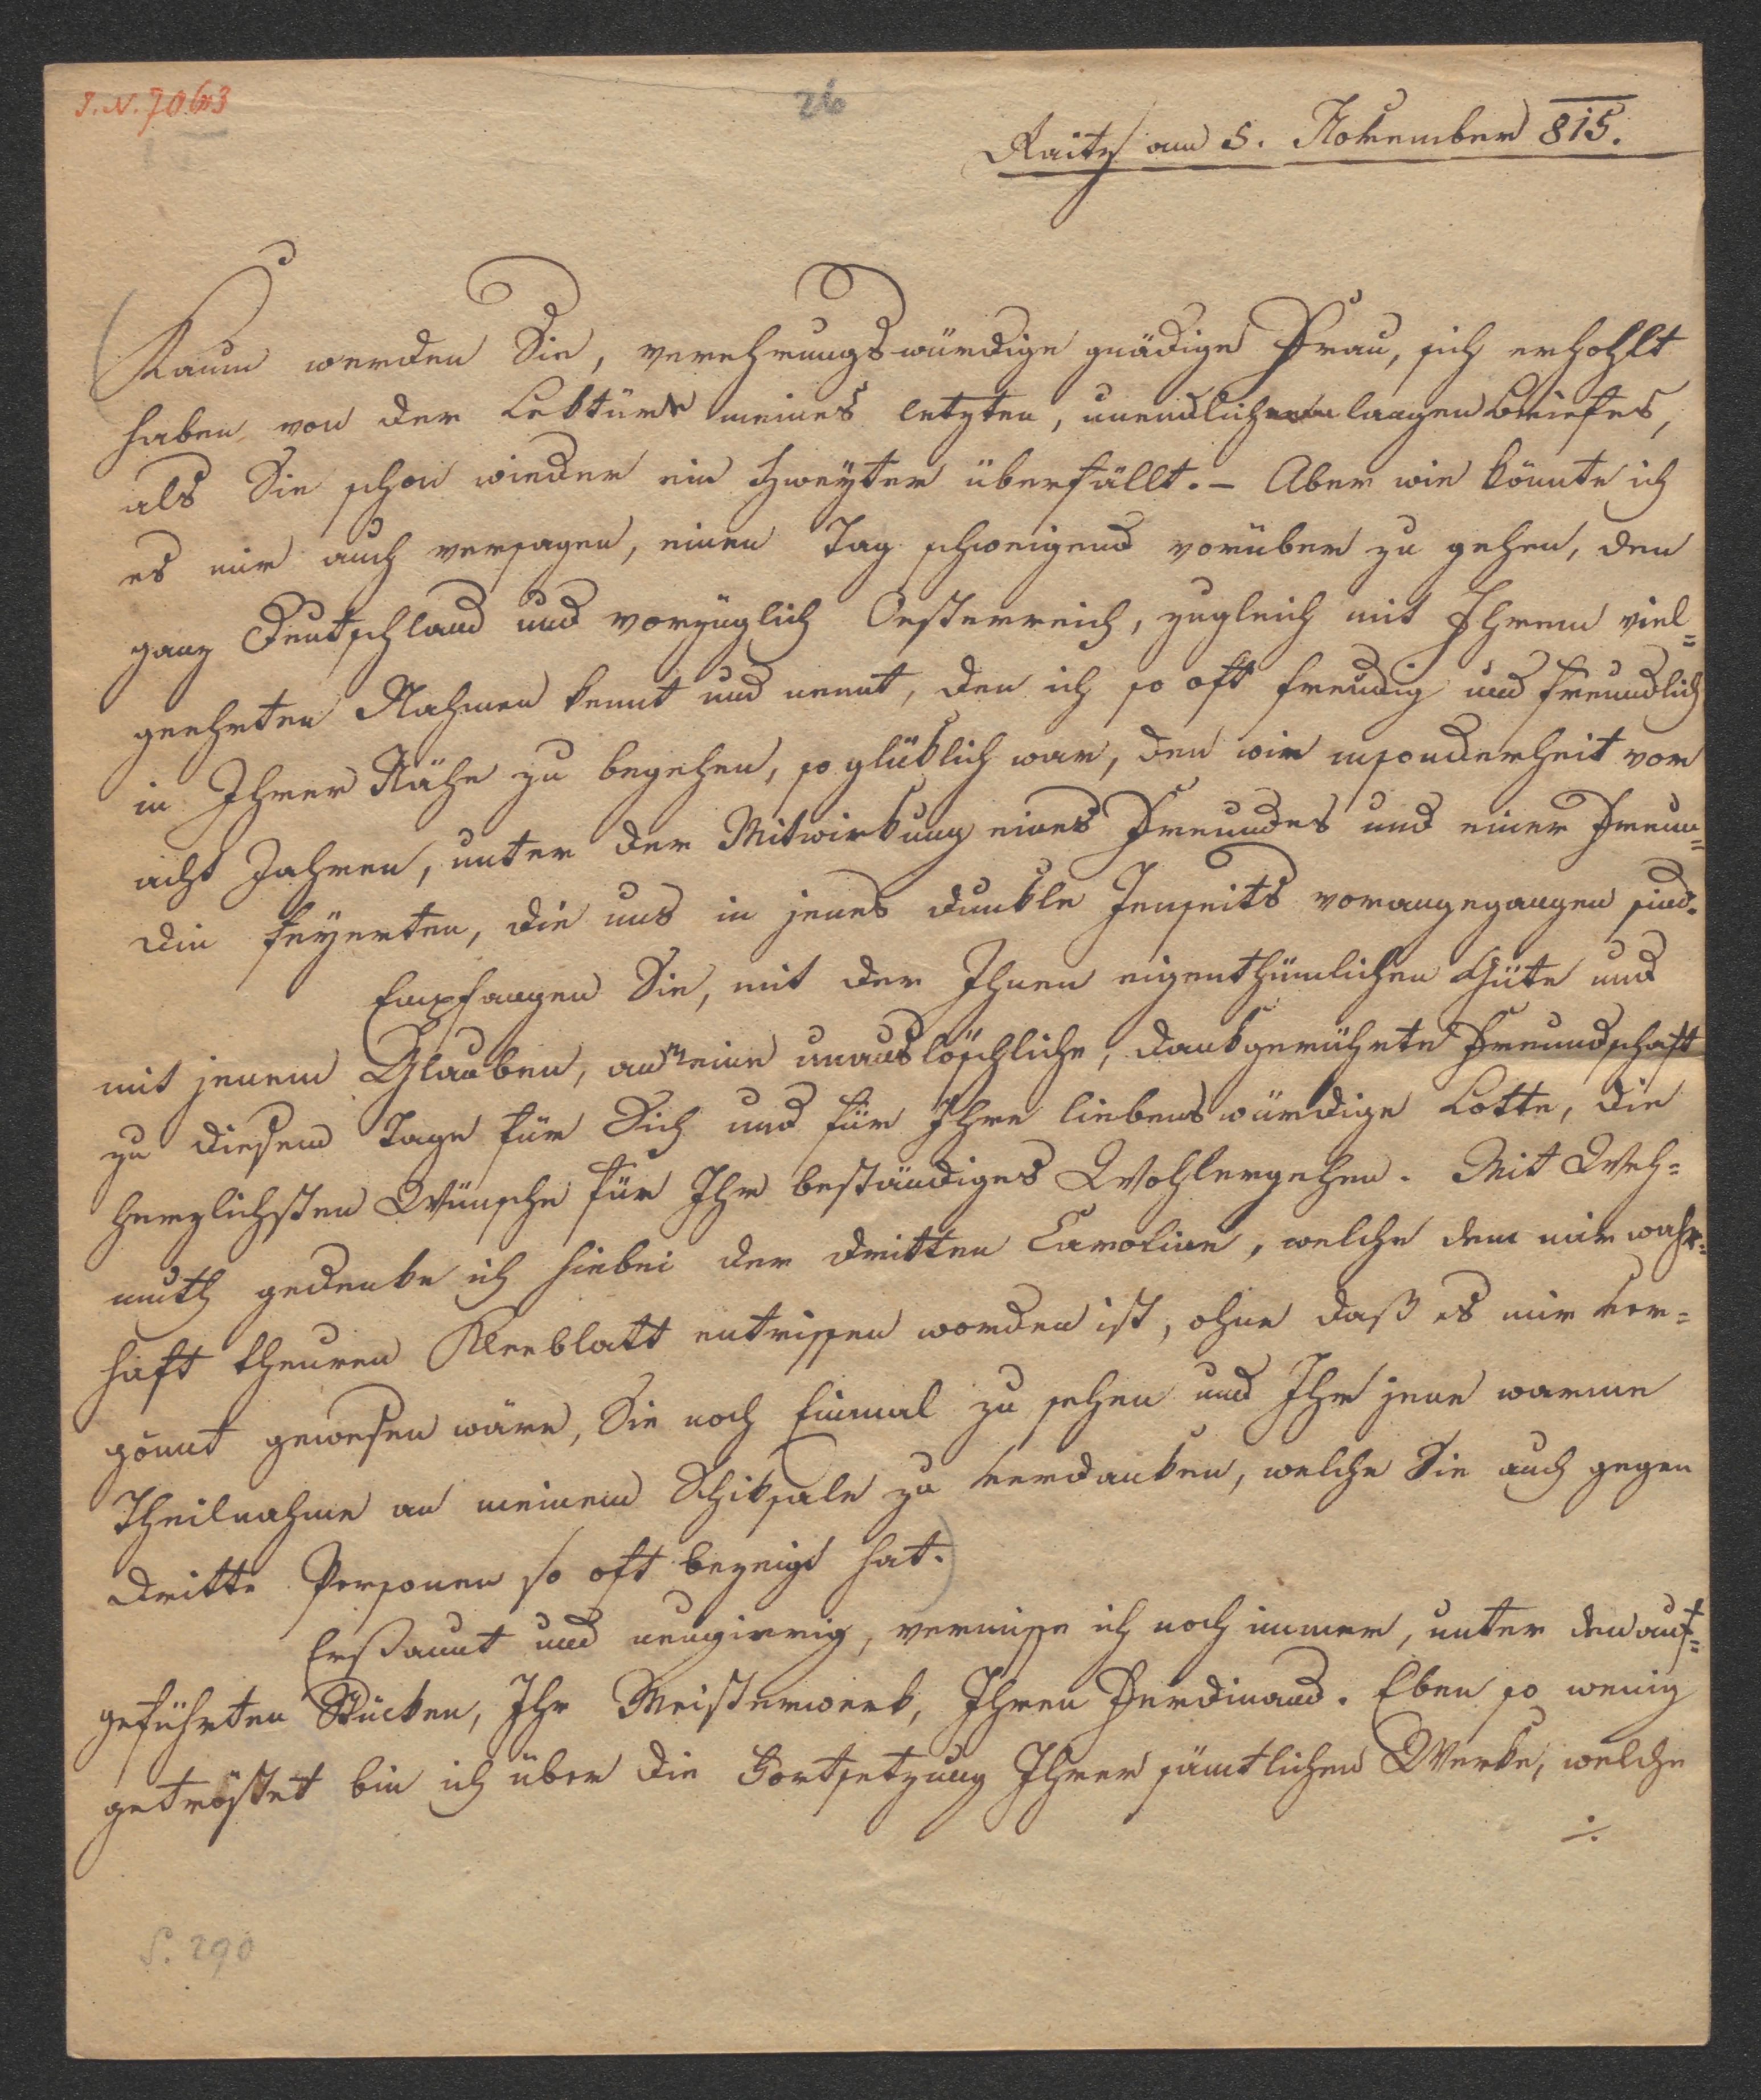 I. N. 7063
26
Raitz am 5. November 815.
Kaum werden Sie, verehrungswürdige gnädige Frau, sich erhohlt
haben von der Lektüre meines letzten, unendlich langen Briefes,
als Sie schon wieder ein zweyter überfällt. – Aber wie könnte ich
es mir auch versagen, einen Tag schweigend vorüber zu gehen, den
ganz Deutschland und vorzüglich Oesterreich, zugleich mit Ihrem viel=
geehrten Nahmen kennt und nennt, den ich so oft freudig und freundlich
in Ihrer Nähe zu begehen, so glüklich war, den wir insonderheit vor
acht Jahren, unter der Mitwirkung eines Freundes und einer Freun=
din feyerten, die uns in jenes dunkle Jenseits vorangegangen sind.
Empfangen Sie, mit der Ihnen eigenthümlichen Güte und
mit jenem Glauben, an meine unauslöschliche, dankgerührte Freundschaft
zu diesem Tage für Sich und für Ihre liebenswürdige Lotte, die
herzlichsten Wünsche für Ihr beständiges Wohlergehen. Mit Weh=
muth gedenke ich hiebei der dritten Caroline, welche dem mir wahr=
haft theuren Kleeblatt entrissen worden ist, ohne daß es mir ver=
gönnt gewesen wäre, Sie noch Einmal zu sehen und Ihr jene warme
Theilnahme an meinem Schiksale zu verdanken, welche Sie auch gegen
dritte Personen so oft bezeigt hat.
Erstaunt und neugierig, vermisse ich noch immer, unter den auf=
geführten Stücken, Ihr Meisterwerk, Ihren Ferdinand. Eben so wenig
getröstet bin ich über die Fortsetzung Ihrer sämtlichen Werke, welche
./.
S. 290